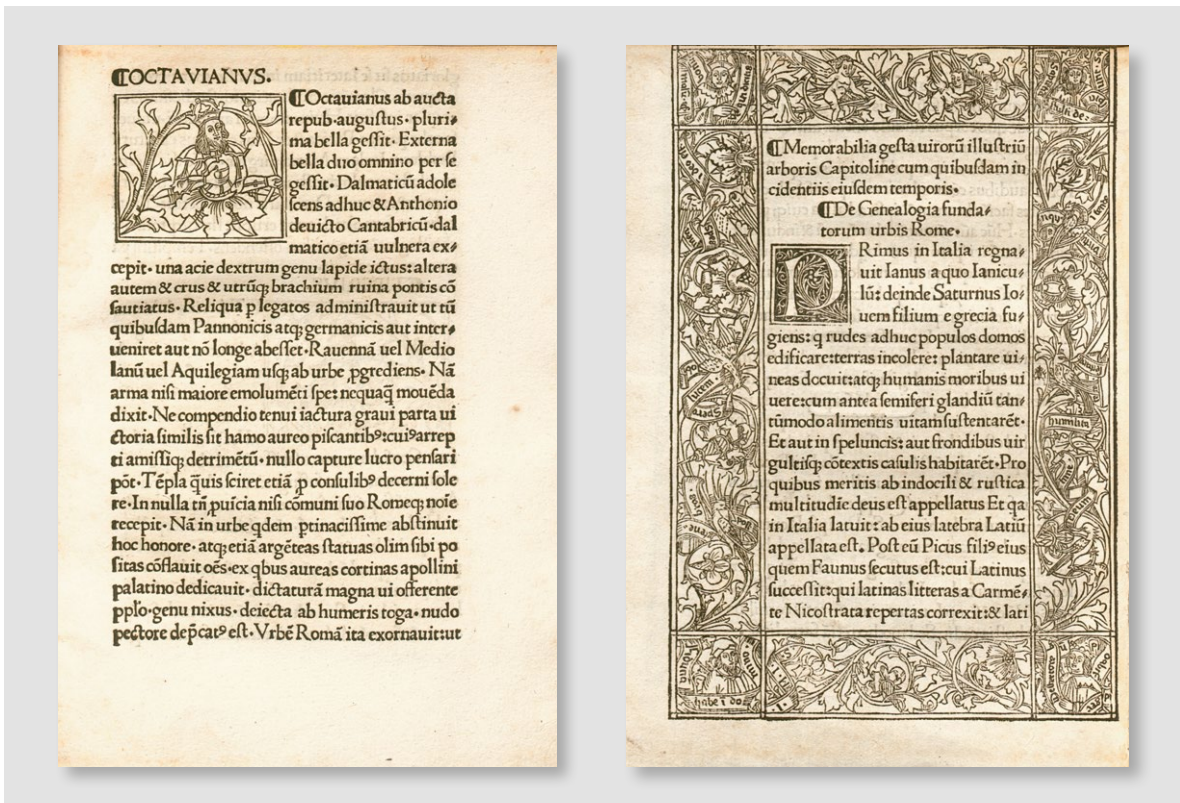 ¶OCTAVIANVS.
¶Octauianus ab aucta
repub·augustus· pluri⸗
ma bella gessit· Externa
bella duo omnino per se
gessit· Dalmaticū adole
scens adhuc &Anthonio
deuicto Cantabricū·dal
matico etiā uulnera ex⸗
cepit· una acie dextrum genu lapide ictus: altera
autem & crus & utrūqꝫ brachium ruina pontis cō
sautiatus· Reliqua p legatos administrauit ut tū
quibusdam Pannonicis atqꝫ germanicis aut inter⸗
ueniret aut nō longe abesset·Rauennā uel Medio
lanū uel Aquilegiam usqꝫ ab urbe ꝓgrediens· Nā
arma nisi maiore emolumēti spe: nequaq̄ mouēda
dixit·Ne compendio tenui iactura graui parta ui
ctoria similis sit hamo aureo piscantibꝰ:cuiꝰarrep
ti amissiqꝫ detrimētū· nullo capture lucro pensari
pōt·Tēpla q̄uis sciret etiā ꝓ consulibꝰ decerni sole
re·In nulla tn̄ ꝓuicia nisi cōmuni suo Romeqꝫ noīe
recepit· Nā in urbe qdem ptinacissime abstinuit
hoc honore· atqꝫ etiā argēteas statuas olim sibi po
sitas cōflauit oēs·ex qbus aureas cortinas apollini
palatino dedicauit· dictaturā magna ui offerente
pplo·genu nixus· deiecta ab humeris toga· nudo
pectore dep̄catꝰ est·Vrbē Romā ita exornauit:ut
¶Memorabilia gesta uirorū illustriū
arboris Capitoline cum quibusdam in
cidentiis eiusdem temporis·
¶De Genealogia funda⸗
torum urbis Rome·
PRimus in Italia regna⸗
uit Ianus a quo Ianicu⸗
lū: deinde Saturnus Io⸗
uem filium e grecia fu⸗
giens: q rudes adhuc populos domos
edificare:terras incolere: plantare ui⸗
neas docuit:atqꝫ humanis moribus ui
uere:cum antea semiferi glandiū tan⸗
tūmodo alimentis uitam sustentarēt·
Et aut in speluncis: aut frondibus uir
gultisqꝫ cōtextis casulis habitarēt·Pro
quibus meritis ab indocili & rustica
multitudīe deus est appellatus Et qa
in Italia latuit: ab eius latebra Latiū
appellata est. Post eū Picus filiꝰ eius
quem Faunus secutus est:cui Latinus
successit:qui latinas litteras a Carmē⸗
te Nicostrata repertas correxit:& lati
lucem
Spera
humilita
habe i do